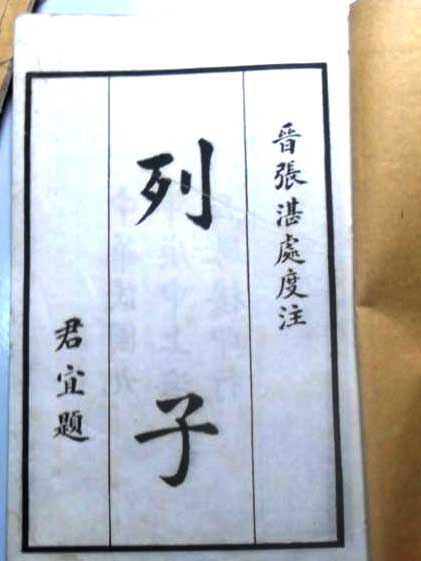 晉張湛處度注
列子
君宜題